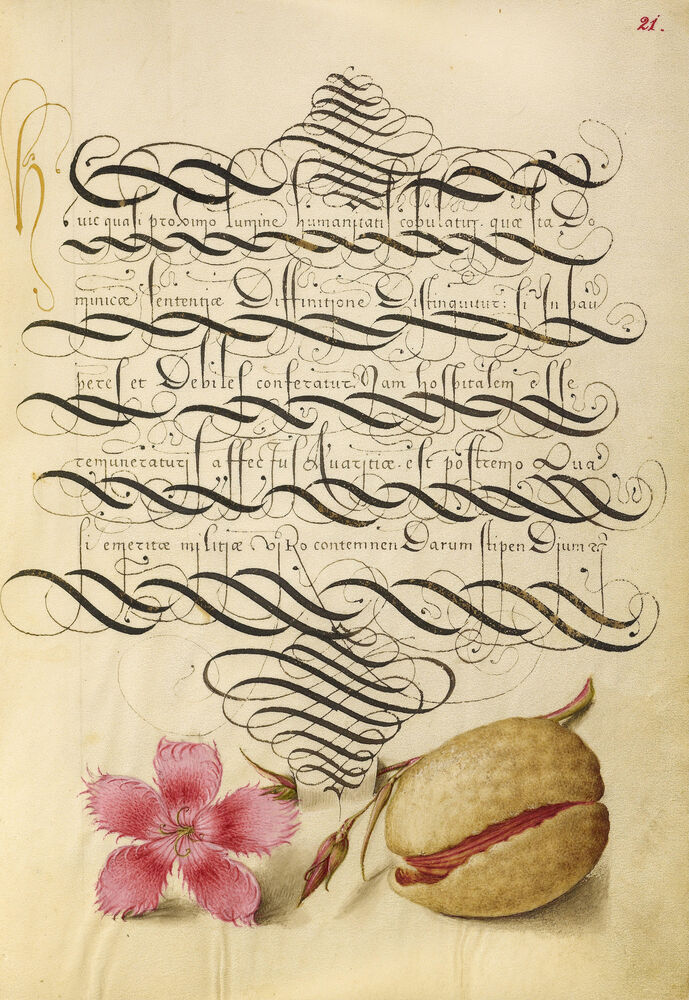 21.
Huic quasi proximo lumine humanitati copulatur. quæ ita Do
minicæ sententiæ Diffinitione Distinguitur: si in pau
peres et Debiles conferatur. Nam hospitalem esse
remuneraturis affectus Auaritiæ. est postremo Qua
si emeritæ militiæ viro contemnen Darum stipen Dium